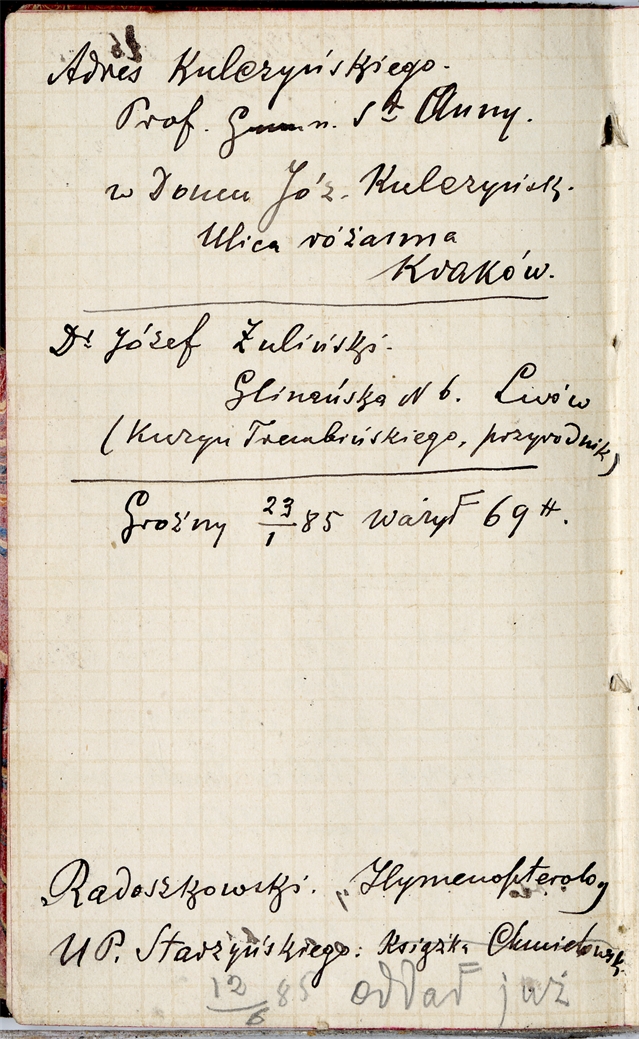 Adres Kulczyńskiego.
Prof. Gmn. St Anny.
w Domu Józ. Kulczyńsk.
Ulica różanna
Kraków.
Dr Józef Żuliński.
Gliniańska N 6. Lwów
(Kuzyn Trembińskiego, przyrodnik)
Groźny 23/1 85 ważył 69 ℔.
Radoszkowski. Hymenopterolog
U P. Starzyńskiego: Książka
12/6 85 oddał już